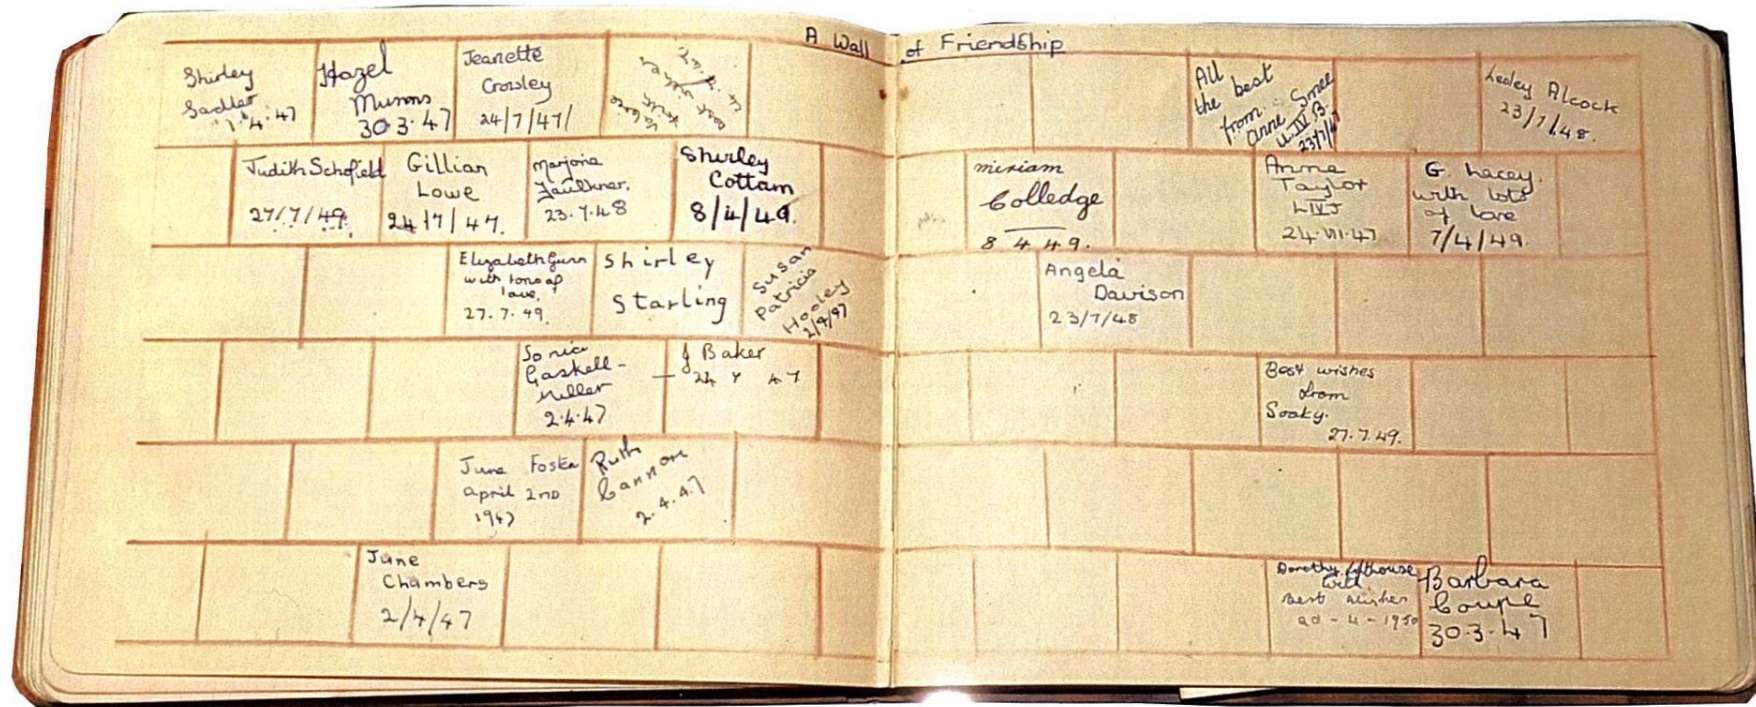 A Wall of Friendship
Shirley
Sadler
1.4.47
Hazel
Munns
30.3.47
Jeanette
Crosley
24/7/47/
best wishes
All
the best
from
Anne Smee
U.IV B.
23/7/47
Lesley Alcock
23/7/48.
Judith Schofield
27/7/49.
Gillian
Lowe
24/7/47.
Marjorie
Faulkner.
23.7.48
Shirley
Cottam
8/4/49.
Miriam
Colledge
8 4 49.
Anne
Taylor
LIVJ
24.VII.47
G. Lacey.
with lots
of love
7/4/49.
Elizabeth Gunn
with tons of
love.
27.7.49.
Shirley
Starling
Susan
Patricia
Hooley
Angela
Davison
23/7/48
Sonia
Gaskell-
Miller
2.4.47
J Baker
24 7 47
Best wishes
from
Sooky.
27.7.49.
June Foster
April 2nd
1947
Ruth
Cannon
2.4.47
June
Chambers
2/4/47
Dorothy Lofthouse
with
Best Wishes
20-4-1950
Barbara
Coupe
30.3.47